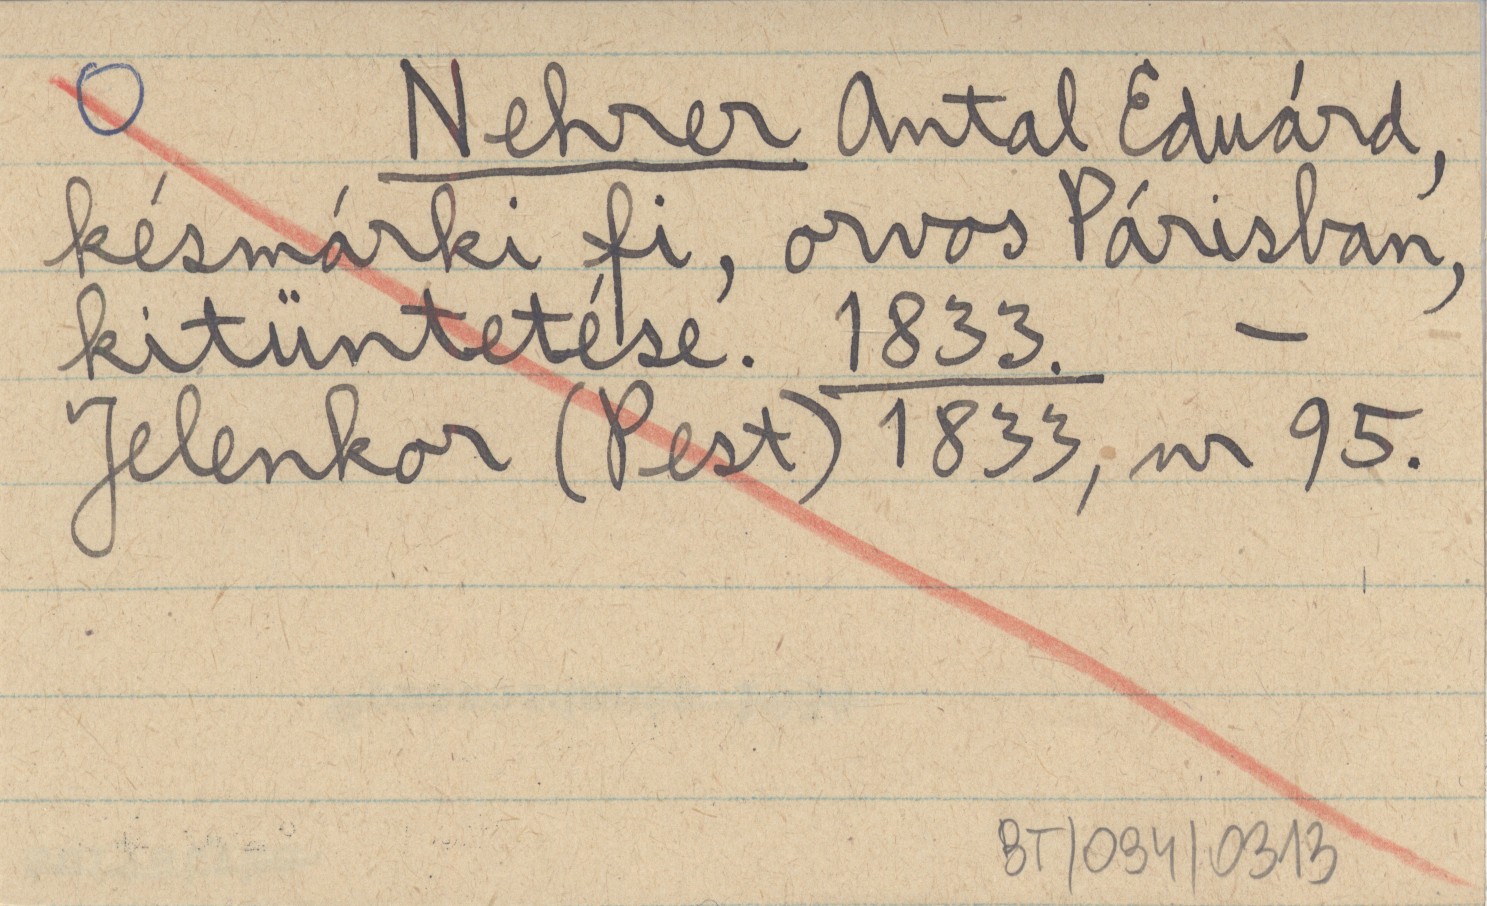 Nehrer Antal Eduárd,
késmárki fi, orvos Párisban,
kitüntetése. 1833. –
Jelenkor (Pest) 1833, nr 95.
BT/094/0313